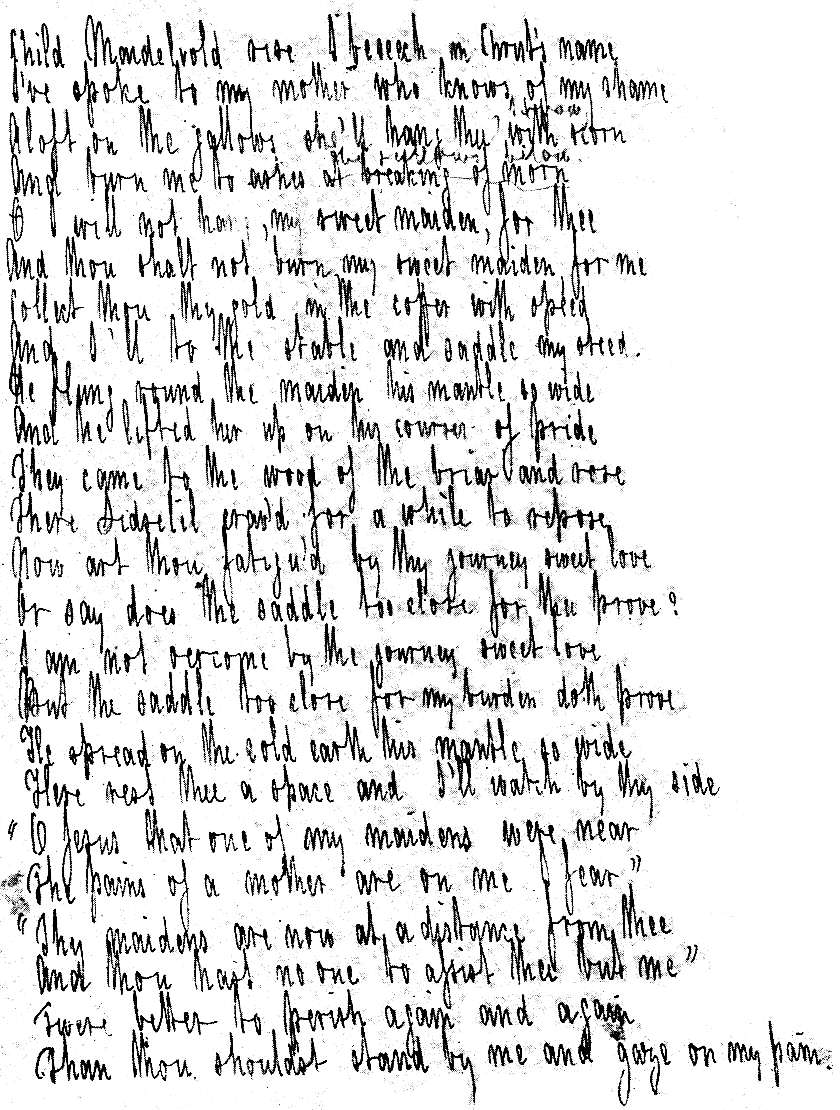 Child Maidelvold rise I beseech in Christ's name
I've spoke to my mother who knows of my shame
Aloft on the gallows she'll hang thee with scorn
And burn me to ashes at breaking of morn
O I will not hang, my sweet maiden, for thee
And thou shalt not burn, my sweet maiden, for me
Collect thou thy gold in the cofer with speed
And I'll to the stable and saddle my steed.
He flung round the maiden his mantle so wide
And he lifted her up on his courser of pride
They came to the wood of the briar and rose
There Sidselil crav'd for a while to repose
Now art thou fatigu'd by thy journey sweet love
Or say does the saddle too close for thee prove?
I am not oercome by the journey sweet love
But the saddle too close for my burden doth prove
He spread on the cold earth his mantle so wide
Here rest thee a space and I'll watch by thy side
"O Jesus that one of my maidens were near
The pains of a mother are on me I fear"
"Thy maidens are now at a distance from thee
And thou hast no one to assist thee but me"
Twere better to perish again and again
Than thou shouldst stand by me and gaze on my pain.